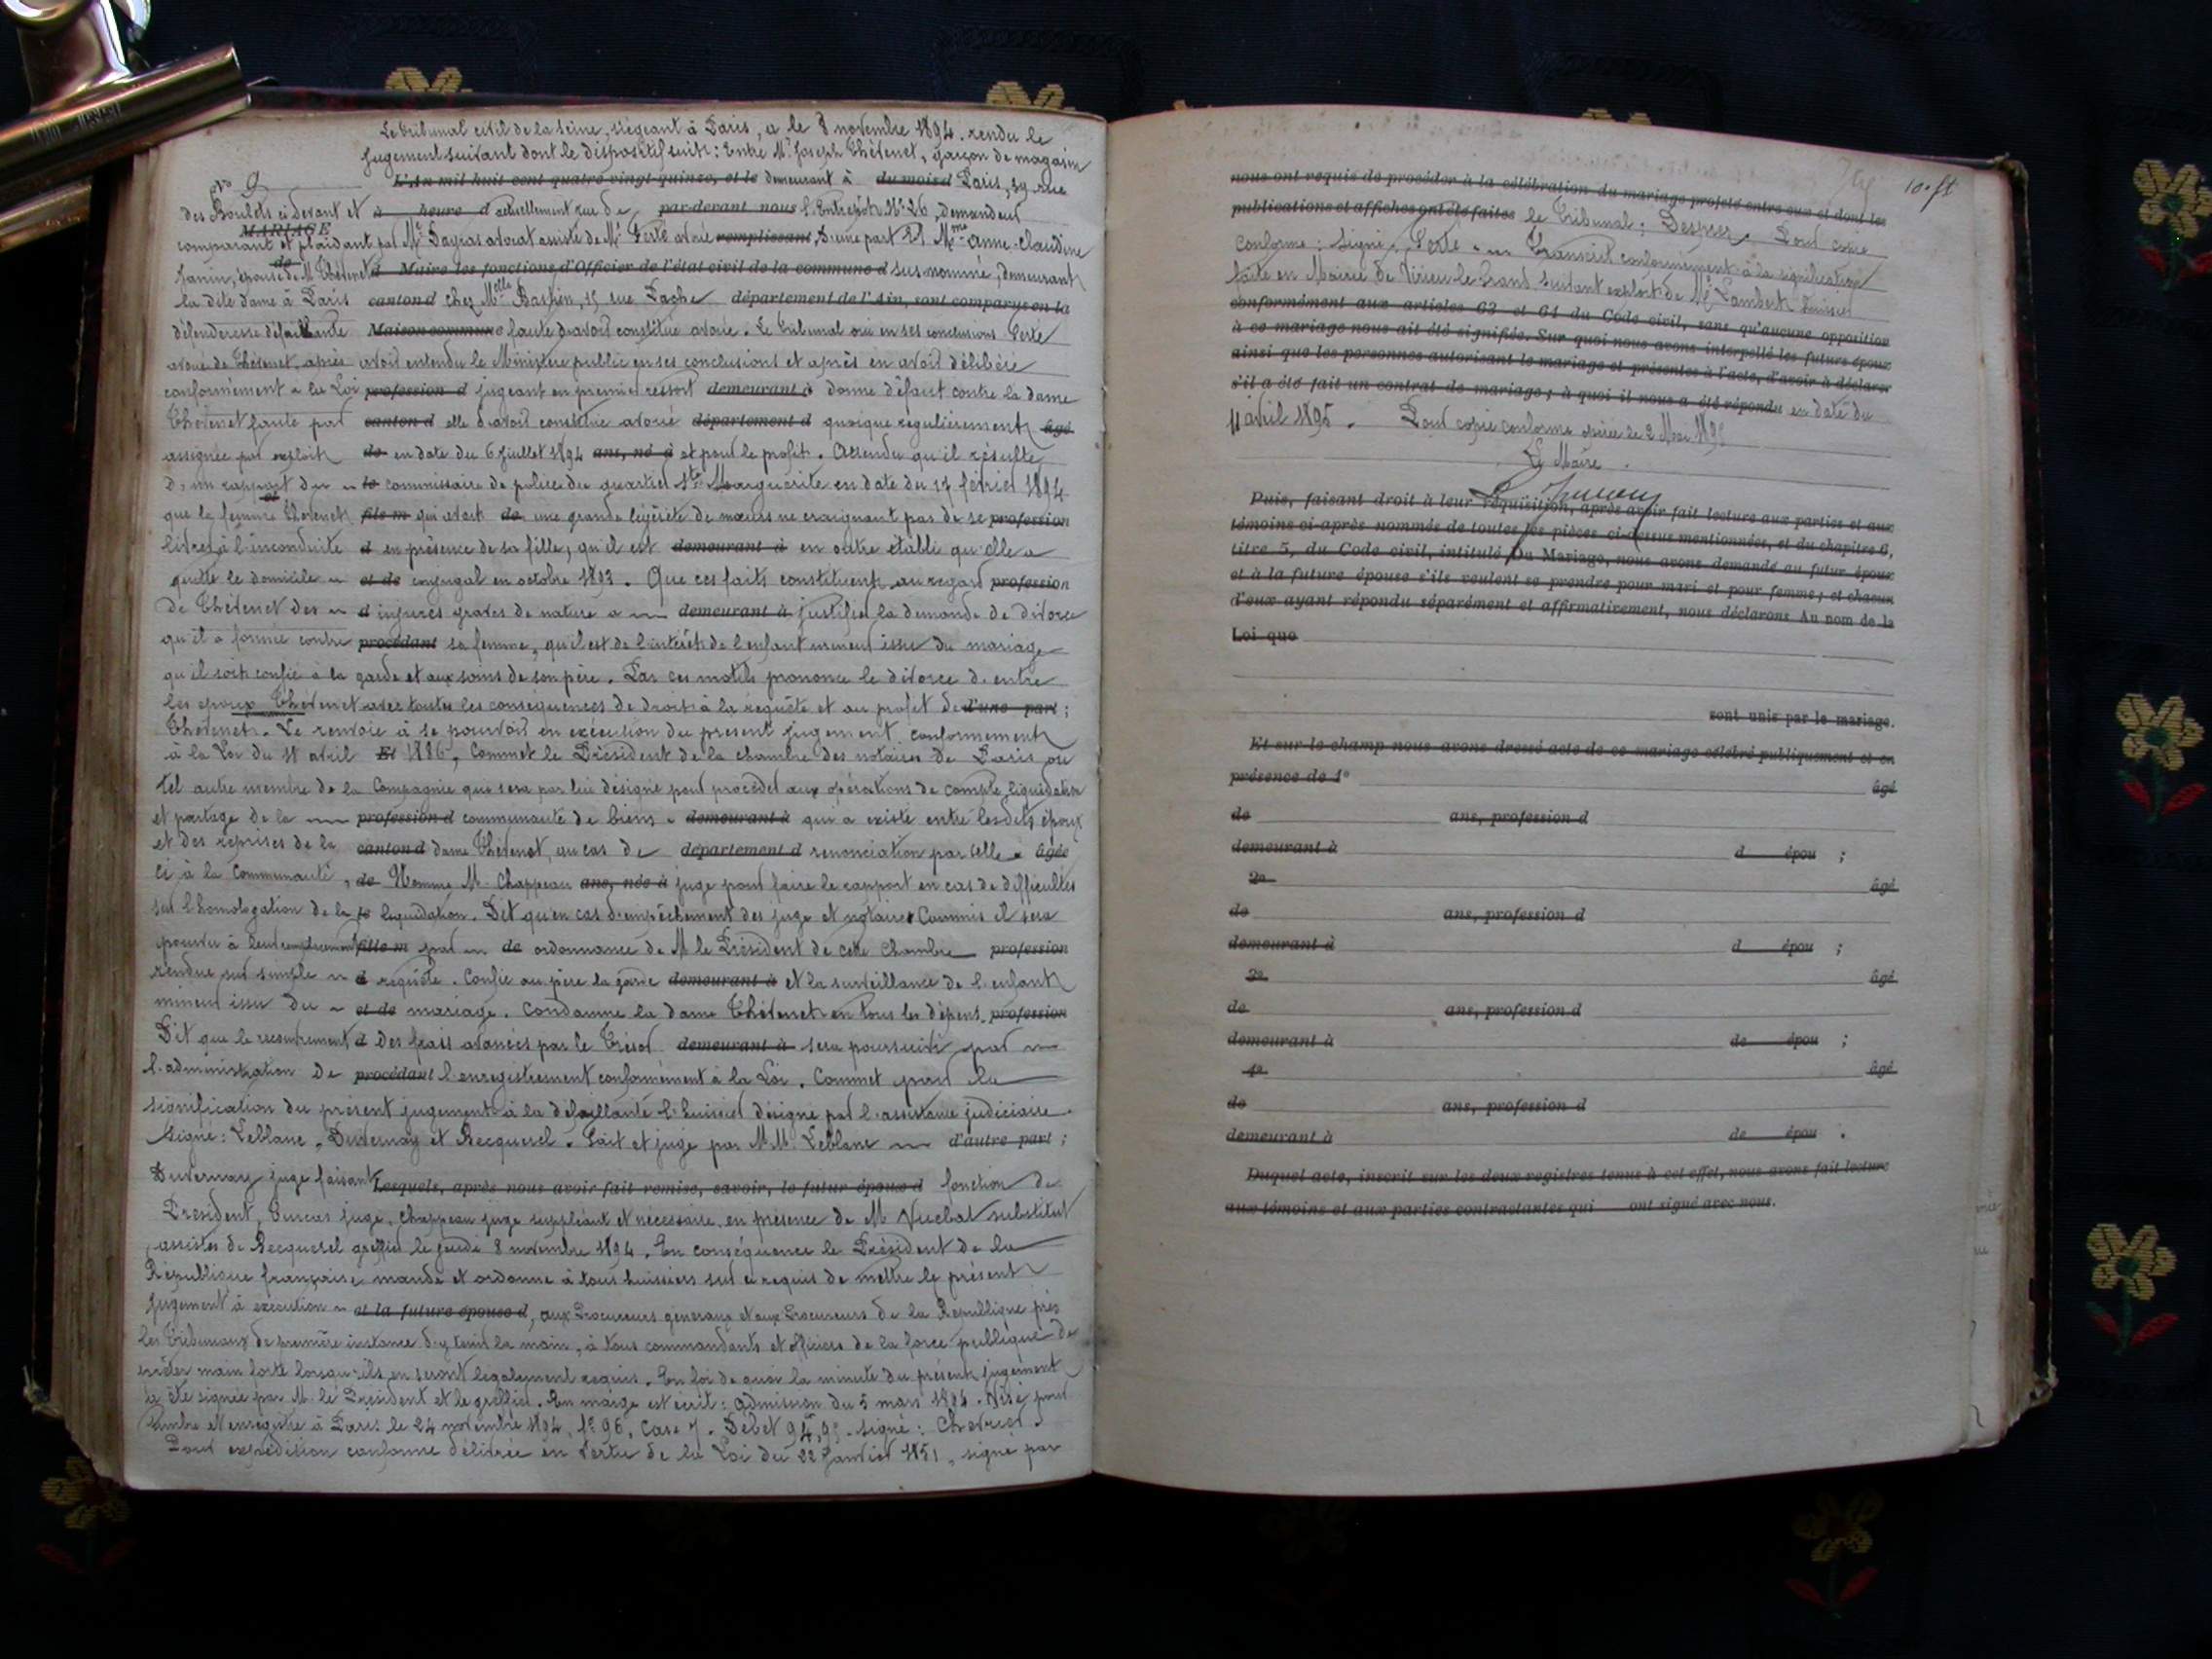 Le Tribunal civil de la Seine, siégeant à Paris, a le 8 novembre 1894. rendu le
jugement suivant dont le dispositif suit: Entre Mr Joseph Thévenet, garçon de magasin
No 9 L'An mil huit cent quatre vingt-quinze, et le demeurant à du mois d Paris, 59 rue
des Boulets ci devant et à heure d actuellement rue de par-devant nous l'Entrepôt No 26, demandeur
MARIAGE
comparant et plaidant par Me Dayras avocat assisté de Me Certe avoué remplissant D'une part Et Mme Anne-Claudine
de
Janin, épouse de M. Thévenet d Maire les fonctions d'Officier de l'état civil de la commune d sus-nommé, demeurant
la dite dame à Paris canton d chez Melle 15 rue département de l'Ain, sont comparus en la
défenderesse défaillante Maison commune faute d'avoir constitué avoué. Le Tribunal oui en ses conclusions Certe
avoué de Thévenet, après avoir entendu le Ministère public en ses conclusions et après en avoir délibéré
conformément à la Loi profession d jugeant en premier ressort demeurant à donne défaut contre la dame
Thévenet faute par canton d elle d'avoir constitué avoué département d quoique régulièrement âgé
assignée par exploit de en date du 6 Juillet 1894 ans, né à et pour le profit. Attendu qu'il résulte
D'un rapport du le commissaire de police du quartier Ste Marguerite en date du 17 février 1894
et
que la femme Thévenet fils m qui avait de une grande légèreté de mœurs ne craignant pas de se profession
livrer à l'inconduite d en présence de sa fille; qu'il est demeurant à en outre établi qu'elle a
quitté le domicile et de conjugal en octobre 1893. Que ces faits constituent au regard profession
de Thévenet des d injures graves de nature a demeurant à justifier la demande de divorce
qu'il a formée contre procédant sa femme, qu'il est de l'intérêt de l'enfant mineur issu du mariage
qu'il soit confié à la garde et aux soins de son père. Par ces motifs prononce le divorce d'entre
les époux Thévenet avec toutes les conséquences de droit à la requête et au profit de d'une part;
Thévenet. Le renvoie à se pourvoir en exécution du présent jugement conformément
à la Loi du 18 avril Et 1886, Commet le Président de la chambre des notaires de Paris ou
tel autre membre de la Compagnie qui sera par lui désigné pour procéder aux opérations de compte, liquidation
et partage de la profession d communauté de biens demeurant à qui a existé entre lesdits époux
et des reprises de la canton d dame Thévenet, au cas de département d renonciation par celle âgée
ci à la Communauté, de Nomme M. Chappeau ans, née à juge pour faire le rapport en cas de difficultés
sur l'homologation de la le liquidation. Dit qu'en cas d'empêchement des juge et notaire Commis il sera
pourvu à leur remplacement fille m par de ordonnance de M le Président de cette Chambre profession
rendue sur simple d requête. Confie au père la garde demeurant à et la surveillance de l'enfant
mineur issu du et de mariage. Condamne la dame Thévenet en tous les dépens. profession
Dit que le recouvrement d des frais avancés par le Trésor demeurant à sera poursuivi par
l'administration de procédant l'enregistrement conformément à la Loi. Commet pour la
signification du présent jugement à la défaillante l'huissier désigné par l'assistance judiciaire.
Signé: Leblanc, Duvernay et Becquerel. Fait et jugé par M.M. Leblanc d'autre part;
Duvernay juge faisant Lesquels, après nous avoir fait remise, savoir, le futur époux d fonction de
Président, juge, Chappeau juge suppléant et nécessaire, en présence de M substitut
assistés de Becquerel greffier le jeudi 8 novembre 1894. En conséquence le Président de la
République française mande et ordonne à tous huissiers sur ce requis de mettre le présent
jugement à exécution et la future épouse d, aux Procureurs généraux et aux Procureurs de la République près
les Tribunaux de première instance d'y tenir la main, à tous commandants et officiers de la force publique de
prêter main forte lorsqu'ils en seront légalement requis. En foi de quoi la minute du présent jugement
a été signée par M. le Président et le greffier. En marge est écrit: Admission du 5 mars 1894. Visé pour
timbre et enregistré à Paris le 24 novembre 1894, fo 96, Case 7. Débet signé:
Pour expédition conforme délivrée en vertu de la Loi du 22 Janvier 1851, signé par
10. ft
nous ont requis de procéder à la célébration du mariage projeté entre eux et dont les
publications et affiches ont été faites le Tribunal: Despres. Pour copie
conforme: signé, Certe. Transcrit conformément à la signification
faite en Mairie de Virieu-le-Grand suivant exploit de Me Lambert huissier
conformément aux articles 63 et 64 du Code civil, sans qu'aucune opposition
à ce mariage nous ait été signifiée. Sur quoi nous avons interpellé les futurs époux
ainsi que les personnes autorisant le mariage et présentes à l'acte, d'avoir à déclarer
s'il a été fait un contrat de mariage; à quoi il nous a été répondu en date du
11 avril 1895. Pour copie conforme opérée le 2 Mai 1895
Le Maire.
Puis, faisant droit à leur réquisition, après avoir fait lecture aux parties et aux
témoins ci-après nommés de toutes les pièces ci-dessus mentionnées, et du chapitre 6,
titre 5, du Code civil, intitulé Du Mariage, nous avons demandé au futur époux
et à la future épouse s'ils veulent se prendre pour mari et pour femme; et chacun
d'eux ayant répondu séparément et affirmativement, nous déclarons Au nom de la
Loi que
sont unis par le mariage.
Et sur le champ nous avons dressé acte de ce mariage célébré publiquement et en
présence de 1º âgé
de ans, profession d
demeurant à d épou ;
2º âgé
de ans, profession d
demeurant à d épou ;
3º âgé
de ans, profession d
demeurant à de épou ;
4º âgé
de ans, profession d
demeurant à de épou .
Duquel acte, inscrit sur les deux registres tenus à cet effet, nous avons fait lecture
aux témoins et aux parties contractantes qui ont signé avec nous.